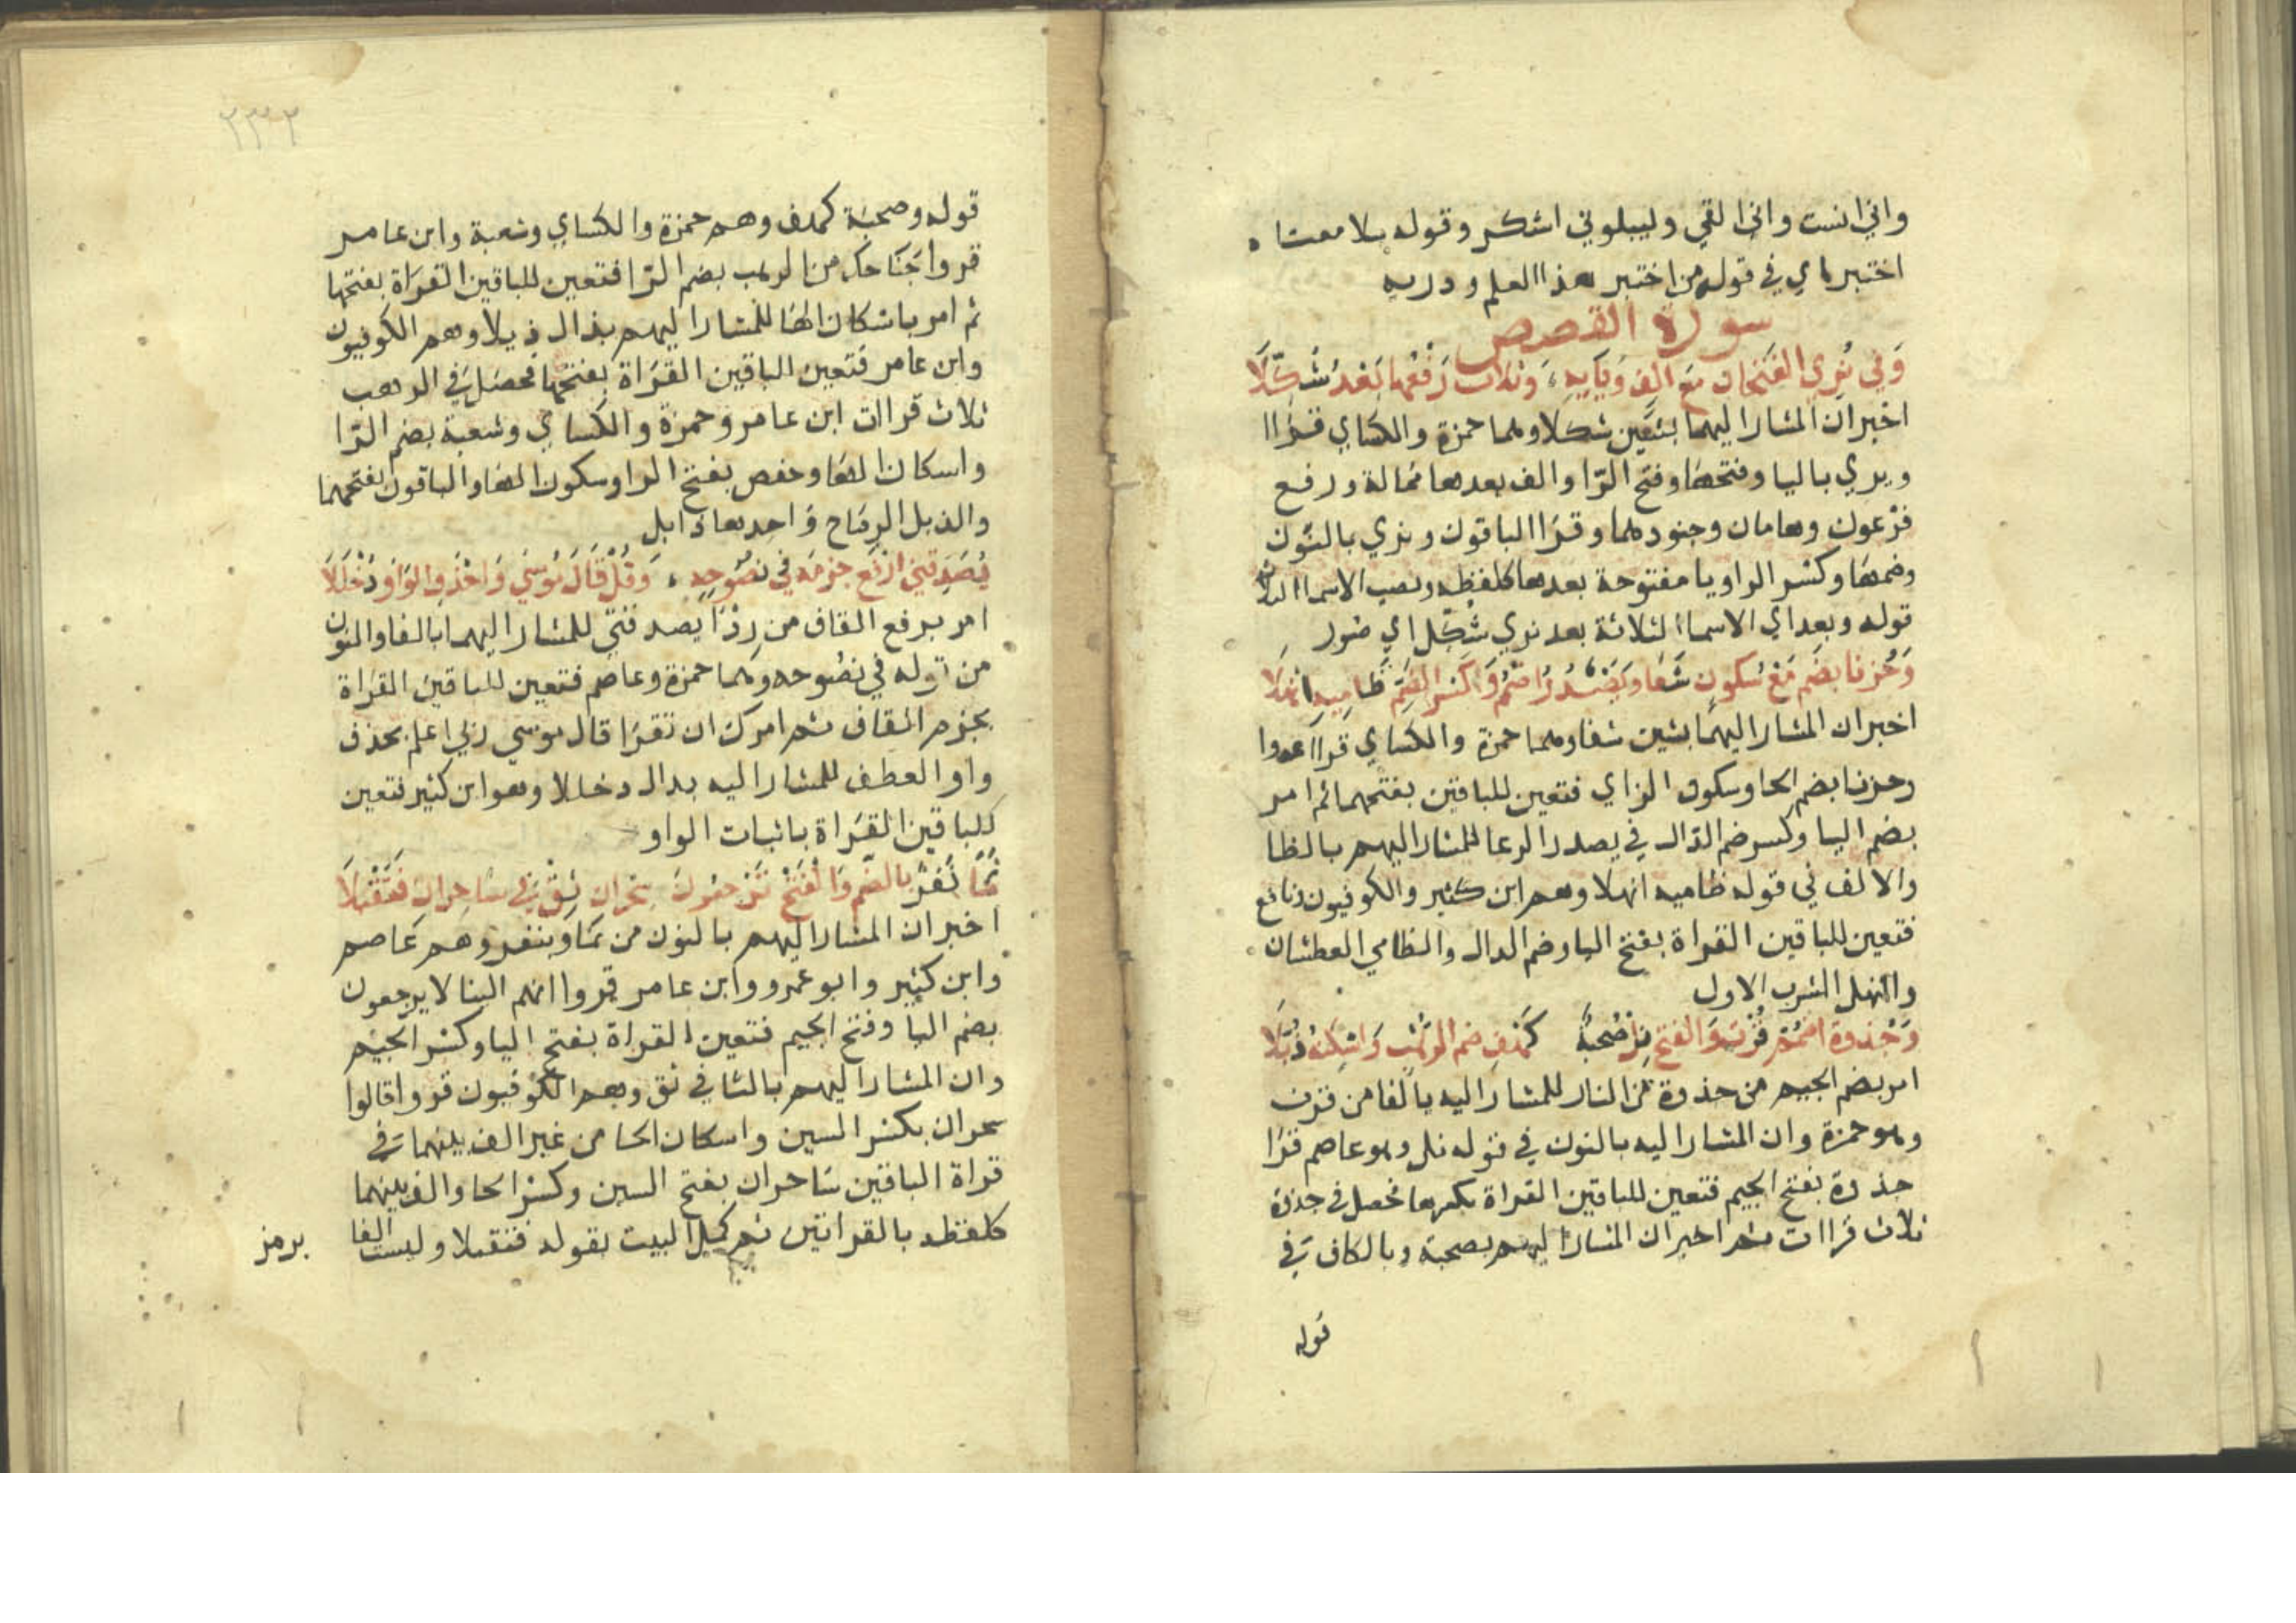 واني انست واني القي وليبلوني اشكر وقوله بلا معتا
اختبر ماي في قوله من اختبر هذا العلم ودريه
سورة القصص
وَفي نُرِي الفتحان مَع الِف وَيَايِهِ وثلاث رَفعُها بَعْدُ شُكّلَا
اخبر ان المشار اليهما بشين شكلا وهما حمزة والكساي قراا
ويري باليا وفتحها وفتح الرّا والف بعدها ممالة ورفع
فرعون وهامان وجنودهما وقرا الباقون ونري بالنون
وضمها وكسر الرا ويا مفتوحة بعدها كلفظه ونصب الاسما الثلاثة
قوله وبعد اي الاسما الثلاثة بعد نري شكّل اي صور
وَحُزنا بضَم مَعْ سُكونٍ شَفا وَيَصْدُرَ اضمُم وَكسْر الضم ظَامِيهِ انهَلَا
اخبر ان المشار اليهما بشين شفا وهما حمزة والكساي قراا عدوا
وحزنا بضم الحا وسكون الزاي فتعين للباقين بفتحهما ثم امر
بضم اليا وكسر ضم الدّال في يصدر الرعا للمشار اليهم بالظا
والالف في قوله ظاميه انهلا وهم ابن كثير والكوفيون ونافع
فتعين للباقين القراة بفتح اليا وضم الدال والظامي العطشان
والنهل الشرب الاول
وَجُذوة اضمُم فُزتَ وَالفتحَ نِل وَصُحبةُ كَهْفِ ضم الرَّهْب وَاسْكِنهُ ذُبَّلَا
امر بضم الجيم من جذوة من النار للمشار اليه بالفا من فزت
وهو حمزة وان المشار اليه بالنون في قوله نل وهو عاصم قرا
جذوة بفتح الجيم فتعين للباقين القراة بكسرها فحصل في جذوة
ثلاث قراات ثم اخبر ان المشار اليهم بصحبة وبالكاف في
قوله
٢٣٢
قوله وصحبة كهف وهم حمزة والكساي وشعبة وابن عامر
قروا جناحك من الرهب بضم الرّا فتعين للباقين القراة بفتحها
ثم امر باسكان الها للمشار اليهم بذال ذبلا وهم الكوفيون
وابن عامر فتعين الباقين القراة بفتحها فحصل في الرهب
ثلاث قراات ابن عامر وحمزة والكساي وشعبة بضم الرّا
واسكان الها وحفص بفتح الرا وسكون الها والباقون بفتحهما
والذبل الرماح واحدها ذابل
يُصَدقني ارْفَع جزمَه في نصُوصِهِ وَقُلْ قَالَ مُوسَي وَاحْذِفِ الوَاوَ دُخْلُلَا
امر برفع القاف من رِدْا يصدقني للمشار اليهما بالفا والنون
من قوله في نصوصه وهما حمزة وعاصم فتعين للباقين القراة
بجزم القاف ثم امرك ان تقرا قال موسي ربي اعلم بحذف
واو العطف للمشار اليه بدال دخللا وهو ابن كثير فتعين
للباقين القراة باثبات الواو
نَمَا نَفَرٌ بِالضّم وَالْفَتحْ تَرْجعُونَ سِحْرانِ ثِقْ فِي سَاحِرانِ فَتُقْبَلَا
اخبر ان المشار اليهم بالنون من نما وبنفر وهم عاصم
وابن كثير وابو عمرو وابن عامر قروا انهم الينا لا يرجعون
بضم اليا وفتح الجيم فتعين القراة بفتح اليا وكسر الجيم
وان المشار اليهم بالثا في ثق وهم الكوفيون قروا قالوا
سحران بكسر السين واسكان الحا من غير الف بينهما في
قراة الباقين ساحران بفتح السين وكسر الحا والف بينهما
كلفظه بالقراتين ثم كمل البيت بقوله فتقبلا وليست الفا
برمز